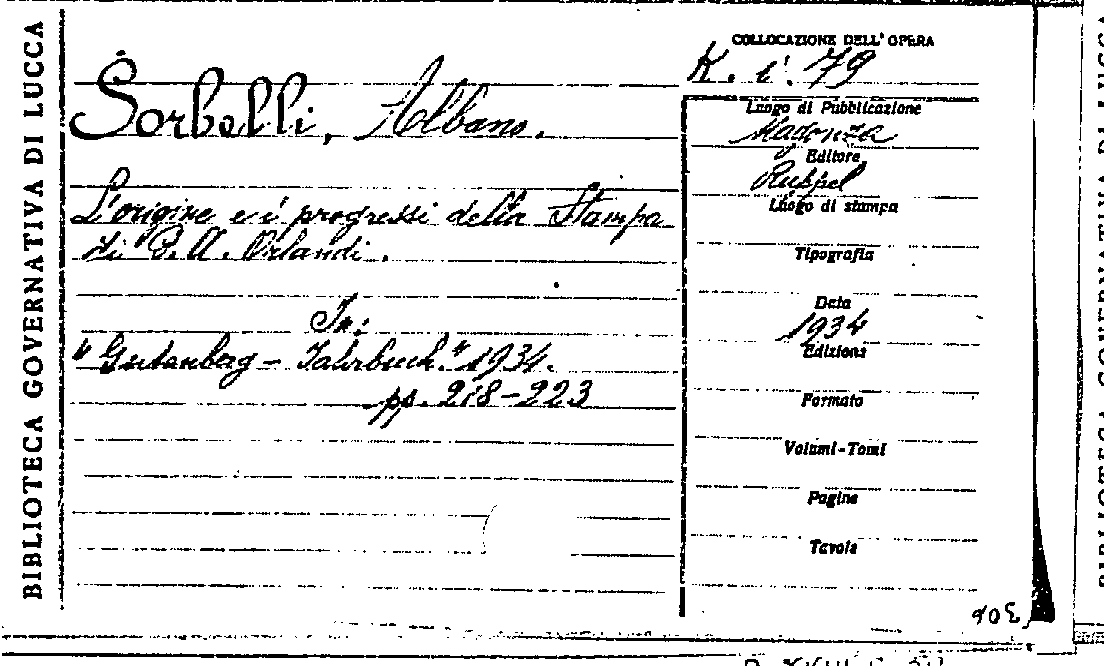 BIBLIOTECA GOVERNATIVA DI LUCCA
COLLOCAZIONE DELL' OPERA
K. i. 79
Sorbelli, Albano.
L'origine e i progressi della Stampa
di P. A. Orlandi.
In:
"Gutenberg - Jahrbuch" 1934.
pp. 218-223
Luogo di Pubblicazione
Magonza
Editore
Ruppel
Luogo di stampa
Tipografia
Data
1934
Edizione
Formato
Volumi-Tomi
Pagine
Tavole